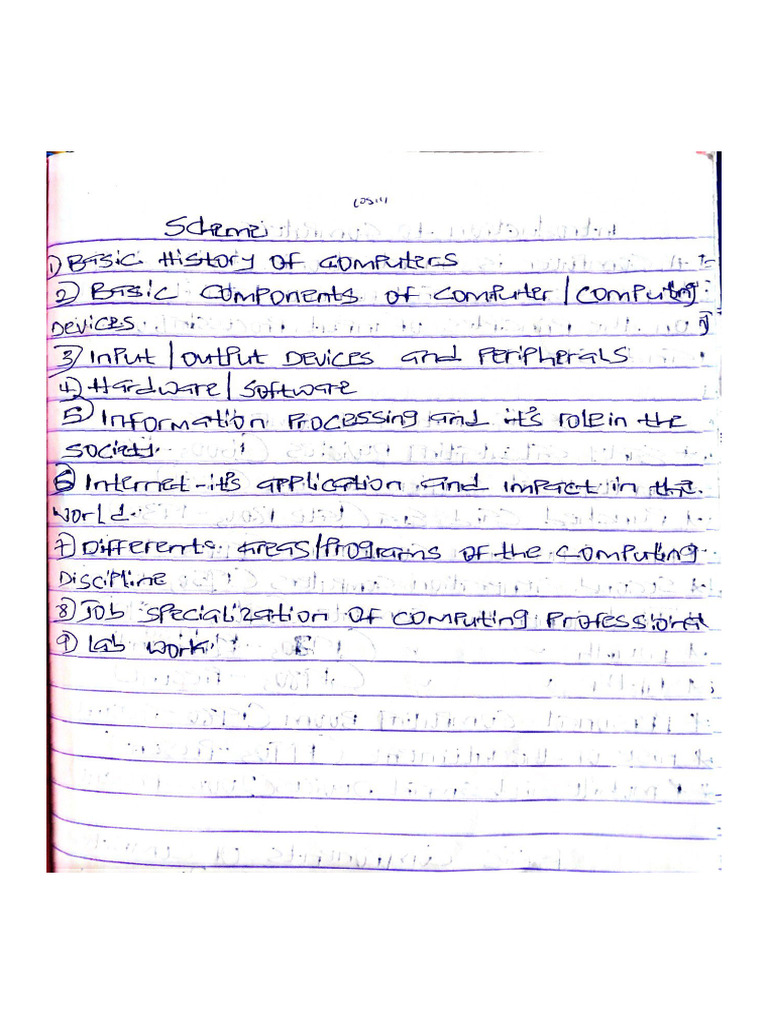 COS111
Scheme
1) Basic History of computers
2) Basic components of computer / computing
Devices
3) Input / output Devices and Peripherals
4) Hardware / software
5) Information Processing and it's role in the
society.
6) Internet - it's application and impact in the
world.
7) Differents areas/Programs of the computing
Discipline
8) Job specialization of computing Professional
9) Lab work